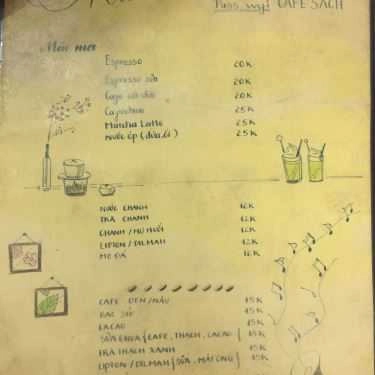 CAFE SÁCH
Món mới
Espresso 20K
Espresso sữa 20K
Cafe cốt dừa 20K
Capuchino 25K
Matcha Latte 25K
Nước ép (dứa, ổi) 25K
NƯỚC CHANH 12K
TRÀ CHANH 12K
CHANH / MƠ MUỐI 12K
LIPTON / DILMAH 12K
MƠ ĐÁ 12K
CAFE ĐEN / NÂU 15K
BẠC SỈU 15K
CACAO 15K
SỮA CHUA { CAFE, THẠCH, CACAO } 15K
TRÀ THẠCH XANH 15K
LIPTON / DILMAH { SỮA, MẬT ONG } 15K